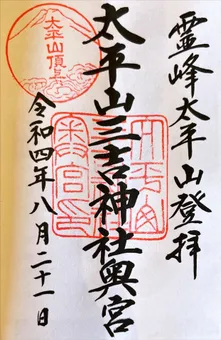 霊峰太平山登拝
太平山三吉神社奥宮
令和四年八月二十一日
太平山頂